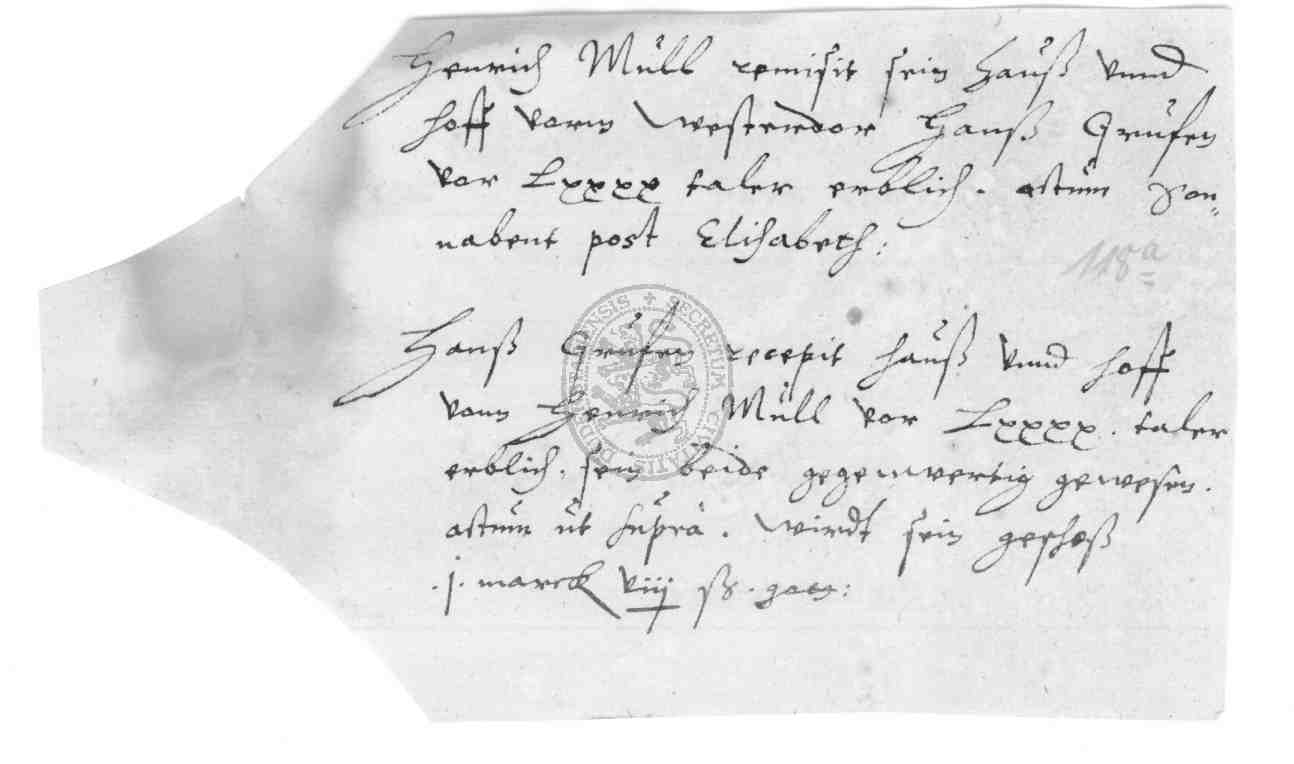 Henrich Müll remisit sein hauß vnnd
hoff vorm Westerdor Hanß Grüfen
vor Lxxxx taler erblich. actum Son„
nabent post Elisabeth:
118a
Hanß Grüfen recepit hauß vnnd hoff
vonn Henrich Müll vor Lxxxx. taler
erblich. sein beide gegenwertig gewesen.
actum ut supra. Wirdt sein geschoß
.j. marck viij ß.
SECRETUM CIVITATIS DUDERSTADENSIS